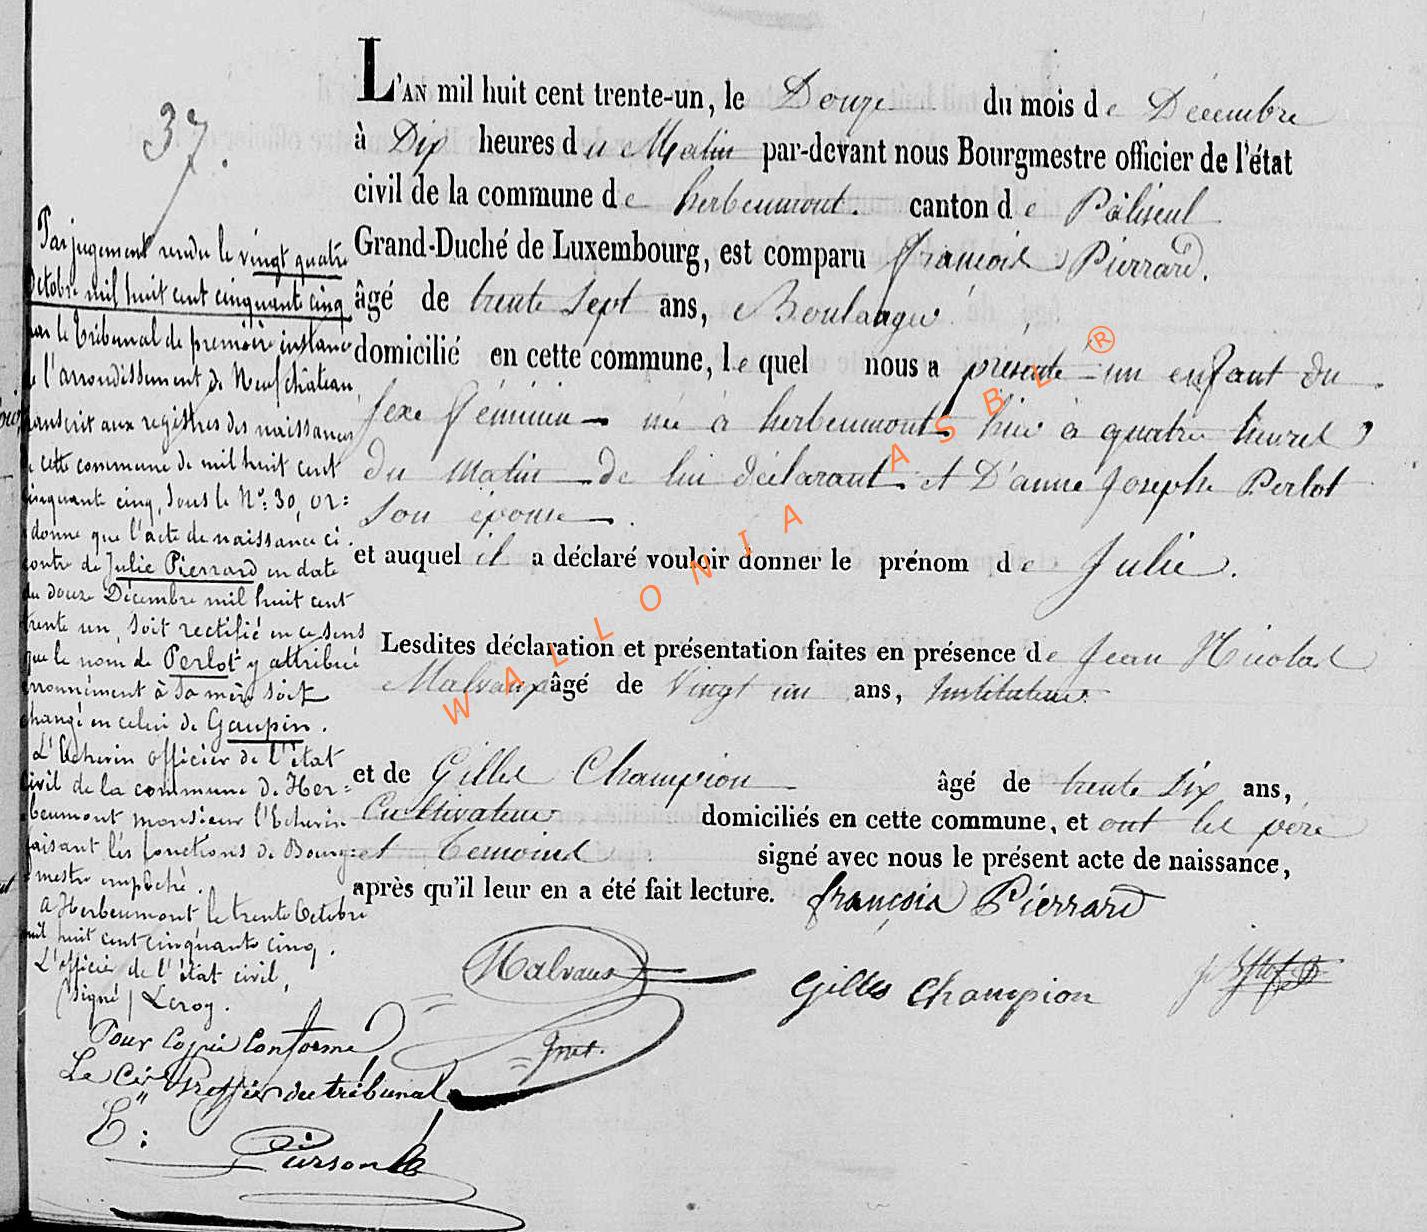 37.
L'AN mil huit cent trente-un, le Douze du mois de Décembre
à Dix heures du Matin par-devant nous Bourgmestre officier de l'état
civil de la commune de herbeumont. canton de Paliseul
Grand-Duché de Luxembourg, est comparu françois Pierrard.
âgé de trente Sept ans, Boulanger
domicilié en cette commune, lequel nous a présenté un enfant du
sexe féminin née à herbeumont hier à quatre heures
du matin de lui déclarant et D'anne Josephe Perlot
son épouse.
et auquel il a déclaré vouloir donner le prénom de Julie.
Lesdites déclaration et présentation faites en présence de Jean Nicolas
Malvaux âgé de Vingt un ans, Instituteur
et de Gilles Champion âgé de trente Six ans,
Cultivateur domiciliés en cette commune, et ont les père
et Temoins signé avec nous le présent acte de naissance,
après qu'il leur en a été fait lecture. françois Pierrard
Malvaux
Gilles Champion
Par jugement rendu le vingt quatre
Octobre mil huit cent cinquante cinq
par le Tribunal de première instance
de l'arrondissement de Neufchâteau
transcrit aux registres des naissances
de cette commune de mil huit cent
cinquante cinq, sous le N°: 30, or=
donne que l'acte de naissance ci.
contre de Julie Pierrard en date
du douze Décembre mil huit cent
trente un, soit rectifié en ce sens
que le nom de Perlot y attribué
erronnément à sa mère soit
changé en celui de Gaupin.
L'Echevin officier de l'état
civil de la commune de Her=
beumont monsieur l'Echevin
faisant les fonctions de Bourg=
mestre empêché.
A Herbeumont le trente Octobre
mil huit cent cinquante cinq.
L'officier de l'état civil,
(signé) Leroy.
Pour Copie Conforme
Le Cis Greffier du tribunal
Pierson
WALLONIA ASBL ®